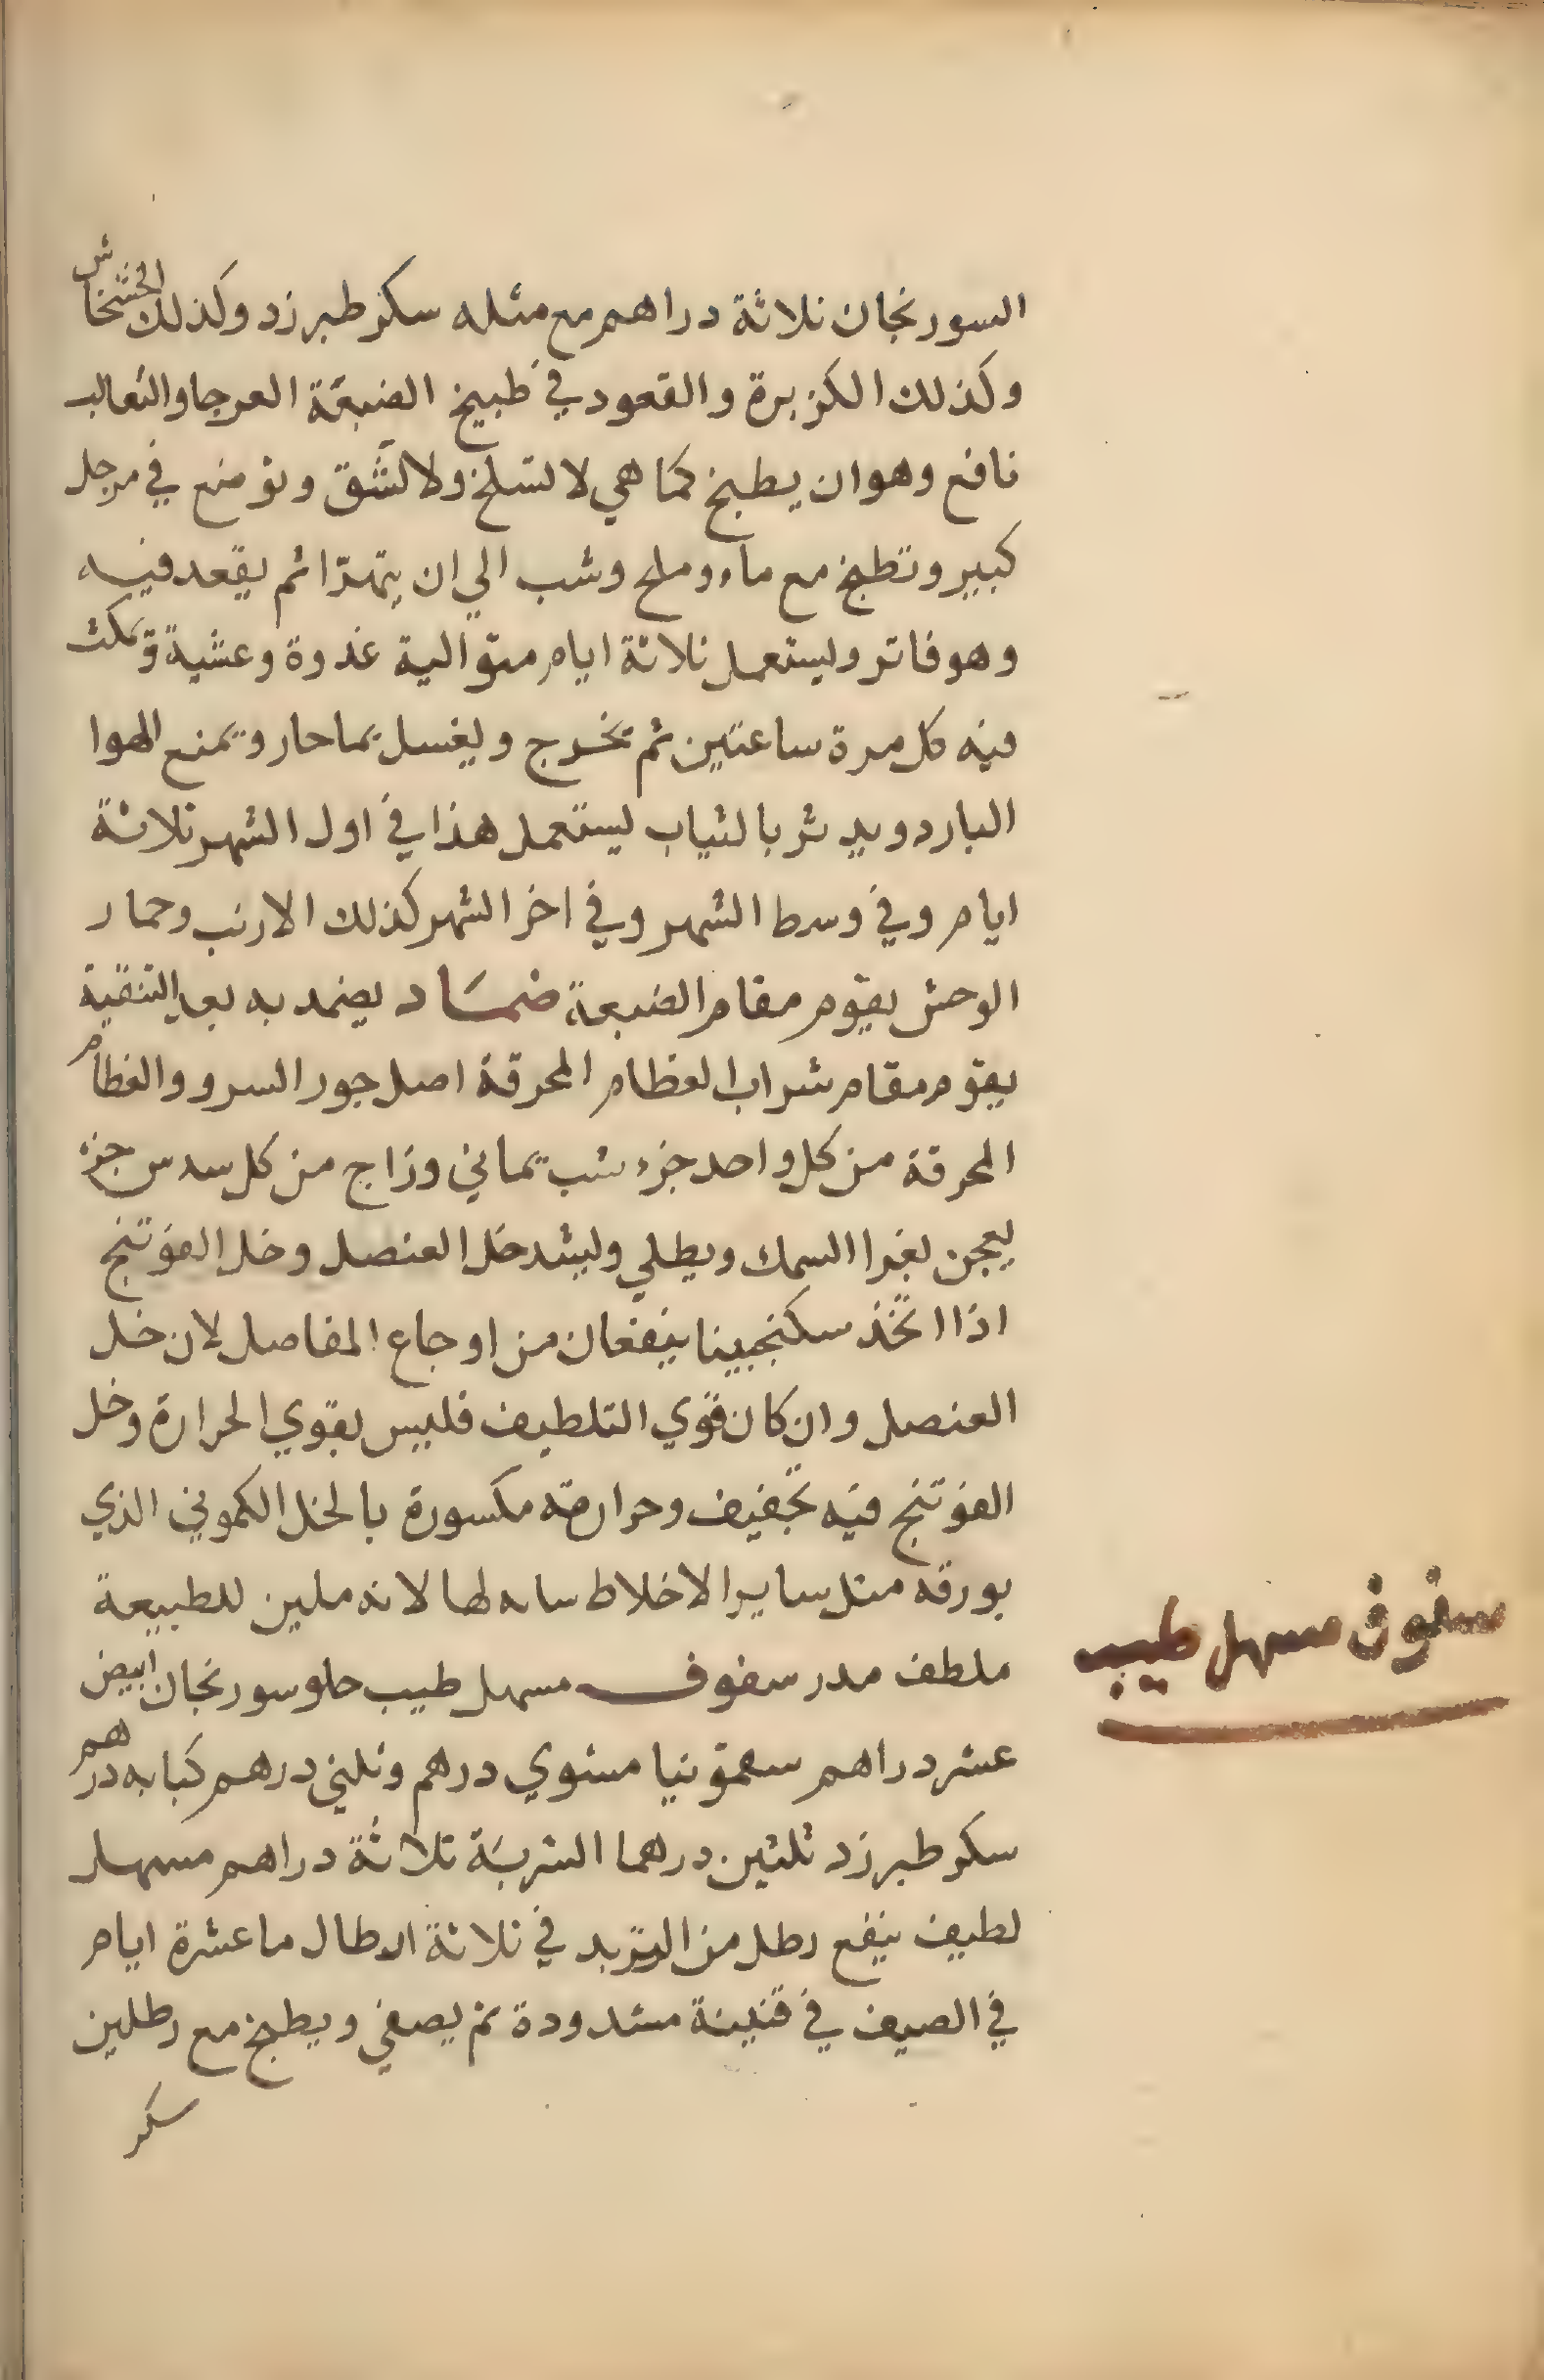 السورنجان ثلاثة دراهم مع مثله سكر طبرزد وكذلك الخشخاش
وكذلك الكزبرة والقعود في طبيخ الضبعة العرجا والثعالب
نافع وهو ان يطبخ كما هي لا تسلخ ولا تشق وتوضع في مرجل
كبير وتطبخ مع ماء وملح وشب الي ان يتهرّا ثم يقعد فيه
وهو فاتر وليستعمل ثلاثة ايام متوالية غدوة وعشية ويمكث
فيه كل مرة ساعتين ثم يخرج ويغسل بما حار ويمنع الهوا
البارد ويدثر بالثياب ليستعمل هذا في اول الشهر ثلاثة
ايام وفي وسط الشهر وفي اخر الشهر كذلك الارنب وحمار
الوحش يقوم مقام الضبعة ضماد يضمد به بعد التنقية
يقوم مقام شراب العظام المحرقة اصل جور السرو والعظام
المحرقة من كل واحد جزء شب يماني وزاج من كل سدس جزء
يعجن بغرا السمك ويطلي وليشد خل العنصل وخل الفوتنج
اذا اتخذ سكنجبينا ينفعان من اوجاع المفاصل لان خل
العنصل وان كان قوي التلطيف فليس بقوي الحرارة وخل
الفوتنج فيه تجفيف وحرارته مكسورة بالخل الكموني الذي
بورقه مثل ساير الاخلاط لها لانه ملين للطبيعة
ملطف مدر سفوف مسهل طيب حلو سورنجان ابيض
عشر دراهم سقمونيا مشوي درهم وثلثي درهم كبابه درهم
سكر طبرزد ثلثين درهما الشربة ثلاثة دراهم مسهل
لطيف ينقع رطل من التربد في ثلاثة ارطال ما عشرة ايام
في الصيف في قنينة مشدودة ثم يصفي ويطبخ مع رطلين
سكر
سفوف مسهل طيب